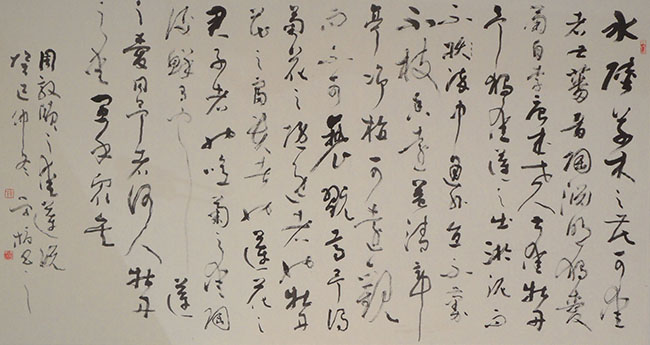 水陸草木之花可愛
者甚蕃晉陶淵明獨愛
菊自李唐來世人甚愛牡丹
予獨愛蓮之出淤泥而
不中通外直不蔓
不枝香遠益清亭
亭淨植可遠觀
而不可褻翫焉予謂
菊花之隱逸者也牡丹
花之富貴者也蓮花之
君子者也噫菊之愛陶
後鮮有聞蓮
之愛同予者何人牡丹
之愛宜乎衆矣
周敦頤之愛蓮說
癸巳仲冬